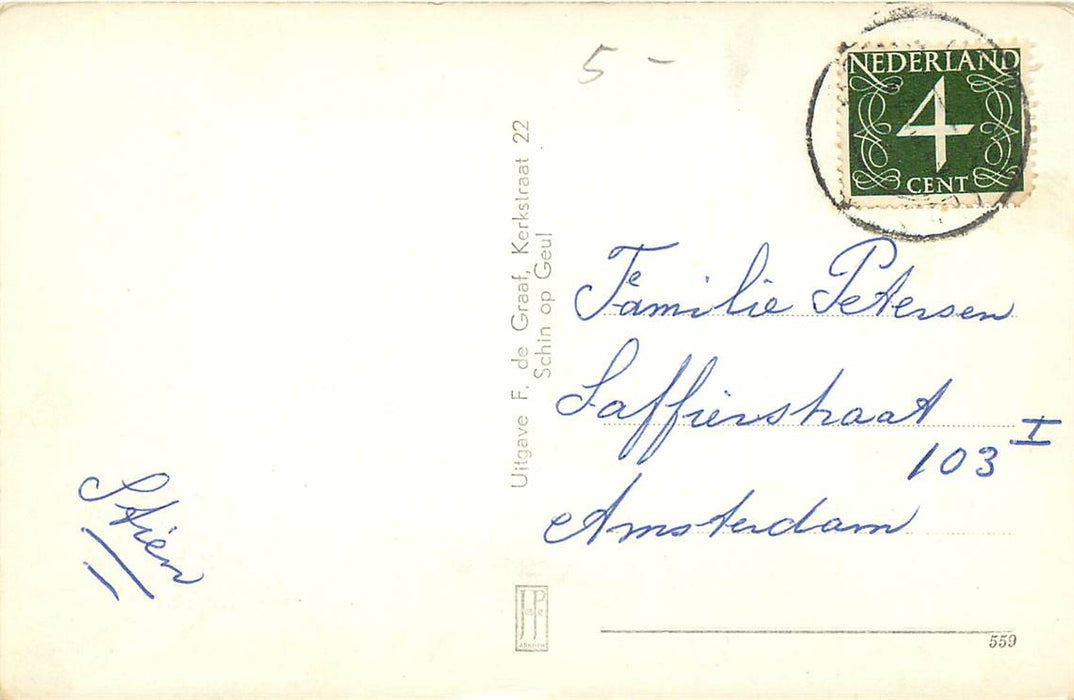 5 -
NEDERLAND
4
CENT
Uitgave F. de Graaf, Kerkstraat 22
Schin op Geul
Familie Petersen
Saffierstraat
103 I
Amsterdam
Stien
559